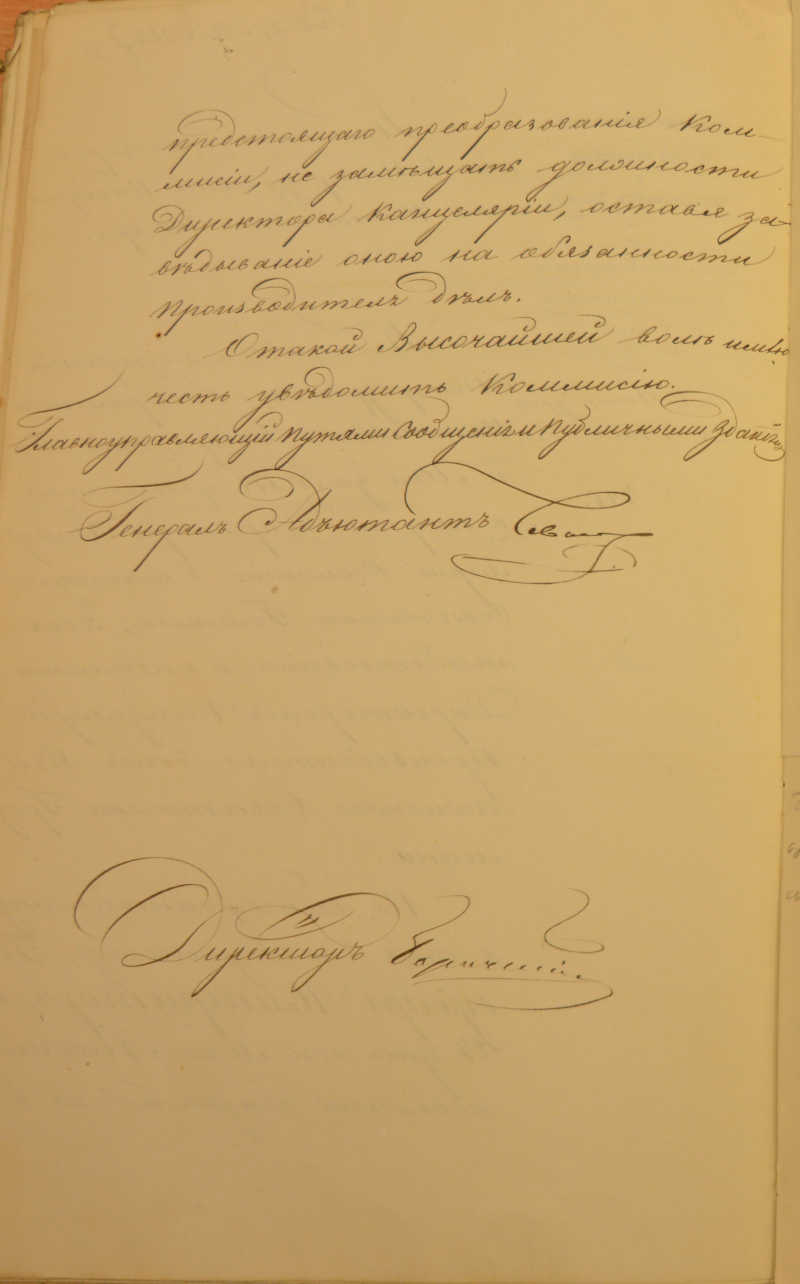 предстоящаго преобразованія Ком
мисіи, не замѣщать должности
Директора Канцеляріи, оставя за-
вѣдываніе оною на обязанности
Производителя Дѣлъ.
О такой Высочайшей волѣ имѣю
честь увѣдомить Коммисію.
Главноуправляющій Путями Сообщенія и Публичными Зданіями
Генералъ Адъютантъ
Директоръ